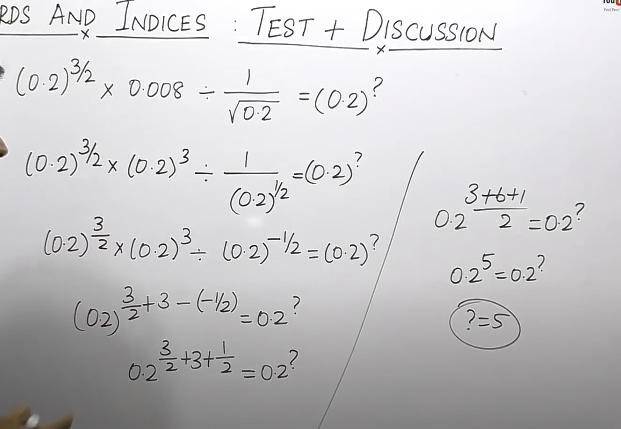 RDS AND INDICES : TEST + DISCUSSION
(0.2)^3/2 × 0.008 ÷ 1/√0.2 = (0.2)^?
(0.2)^3/2 × (0.2)^3 ÷ 1/(0.2)^1/2 = (0.2)^?
(0.2)^3/2 × (0.2)^3 ÷ (0.2)^-1/2 = (0.2)^?
(0.2)^3/2+3-(-1/2) = 0.2^?
0.2^3/2+3+1/2 = 0.2^?
0.2^(3+6+1)/2 = 0.2^?
0.2^5 = 0.2^?
? = 5